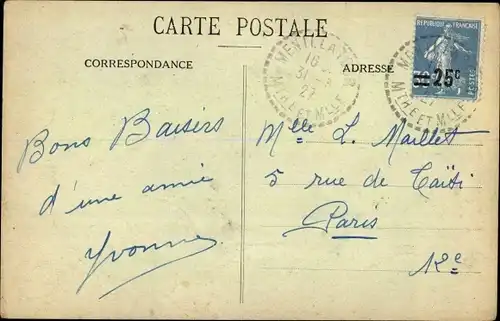 CARTE POSTALE
CORRESPONDANCE
ADRESSE
REPUBLIQUE FRANÇAISE
25c
POSTES
16
31
27
ILLE ET VILLE
Bons Baisers
d'une amie
Yvonne
Mlle L. Maillet
5 rue de Taïti
Paris
12e